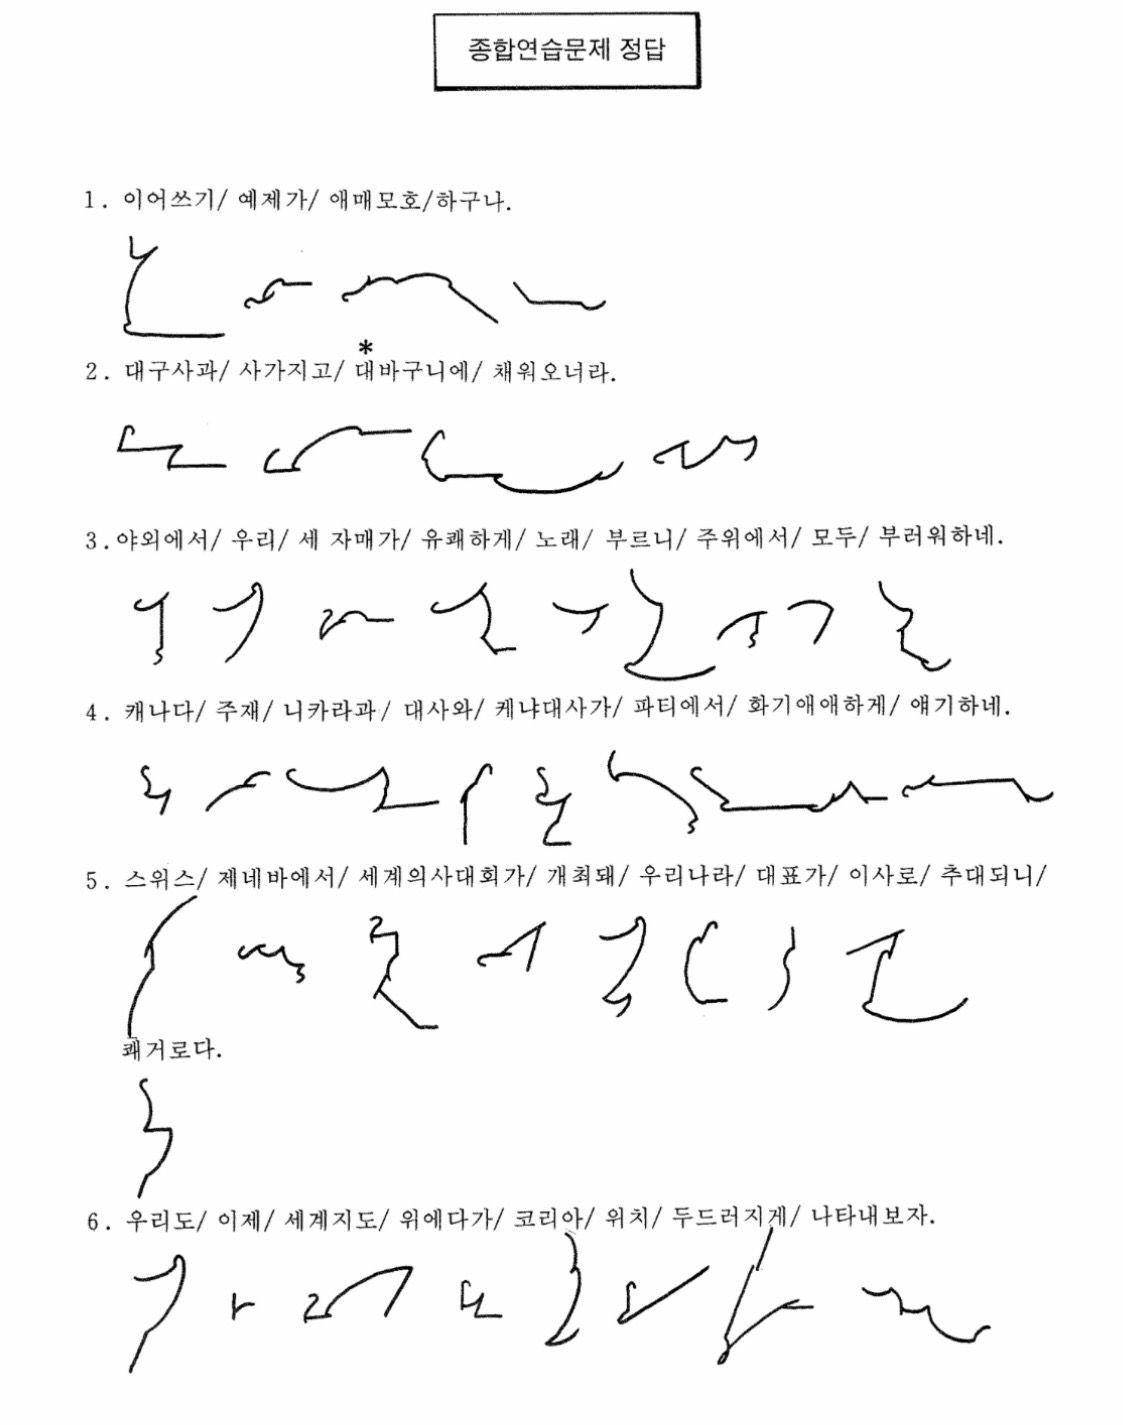 종합연습문제 정답
1. 이어쓰기/ 예제가/ 애매모호/하구나.
*
2. 대구사과/ 사가지고/ 대바구니에/ 채워오너라.
3.야외에서/ 우리/ 세 자매가/ 유쾌하게/ 노래/ 부르니/ 주위에서/ 모두/ 부러워하네.
4. 캐나다/ 주재/ 니카라과/ 대사와/ 케냐대사가/ 파티에서/ 화기애애하게/ 얘기하네.
5. 스위스/ 제네바에서/ 세계의사대회가/ 개최돼/ 우리나라/ 대표가/ 이사로/ 추대되니/
쾌거로다.
6. 우리도/ 이제/ 세계지도/ 위에다가/ 코리아/ 위치/ 두드러지게/ 나타내보자.